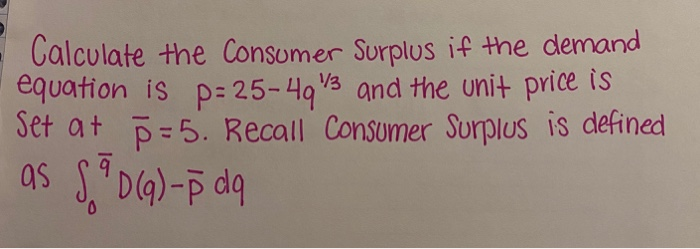 Calculate the Consumer Surplus if the demand
equation is p=25-4q^1/3 and the unit price is
Set at p̅=5. Recall Consumer Surplus is defined
as ∫₀^q̅ D(q)-p̅ dq